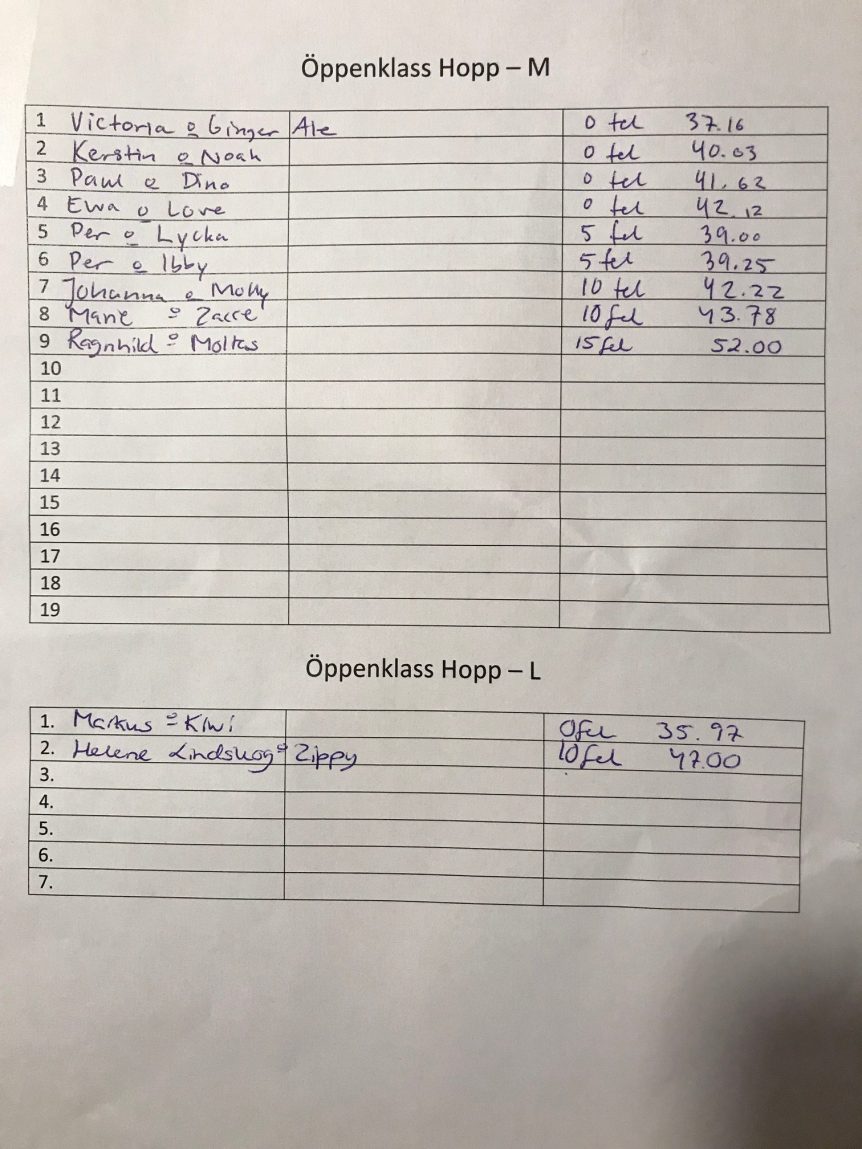 Öppenklass Hopp – M
1 Victoria o Ginger Ale 0 fel 37.16
2 Kerstin o Noah 0 fel 40.03
3 Paul o Dino 0 fel 41.62
4 Ewa o Love 0 fel 42.12
5 Per o Lycka 5 fel 39.00
6 Per o Ibby 5 fel 39.25
7 Johanna o Molly 10 fel 42.22
8 Marie o Zacke 10 fel 43.78
9 Ragnhild o 15 fel 52.00
10
11
12
13
14
15
16
17
18
19
Öppenklass Hopp – L
1. Markus o Kiwi 0 fel 35.97
2. Helene Lindskog o Zippy 10 fel 47.00
3.
4.
5.
6.
7.